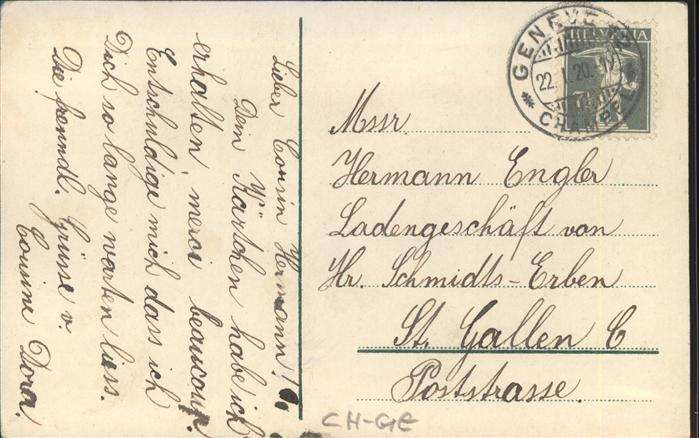 Lieber Cousin Hermann!
Dein Kärtchen habe ich
erhalten, merci beaucoup.
Entschuldige mich dass ich
Dich so lange warten liess.
Die freundl. Grüsse v.
Cousine Dora.
GENÈVE
22. I. 20.
CHAMPEL
HELVETIA
Mssr.
Hermann Engler
Ladengeschäft von
Hr. Schmidts-Erben
St. Gallen C
Poststrasse.
CH-GE